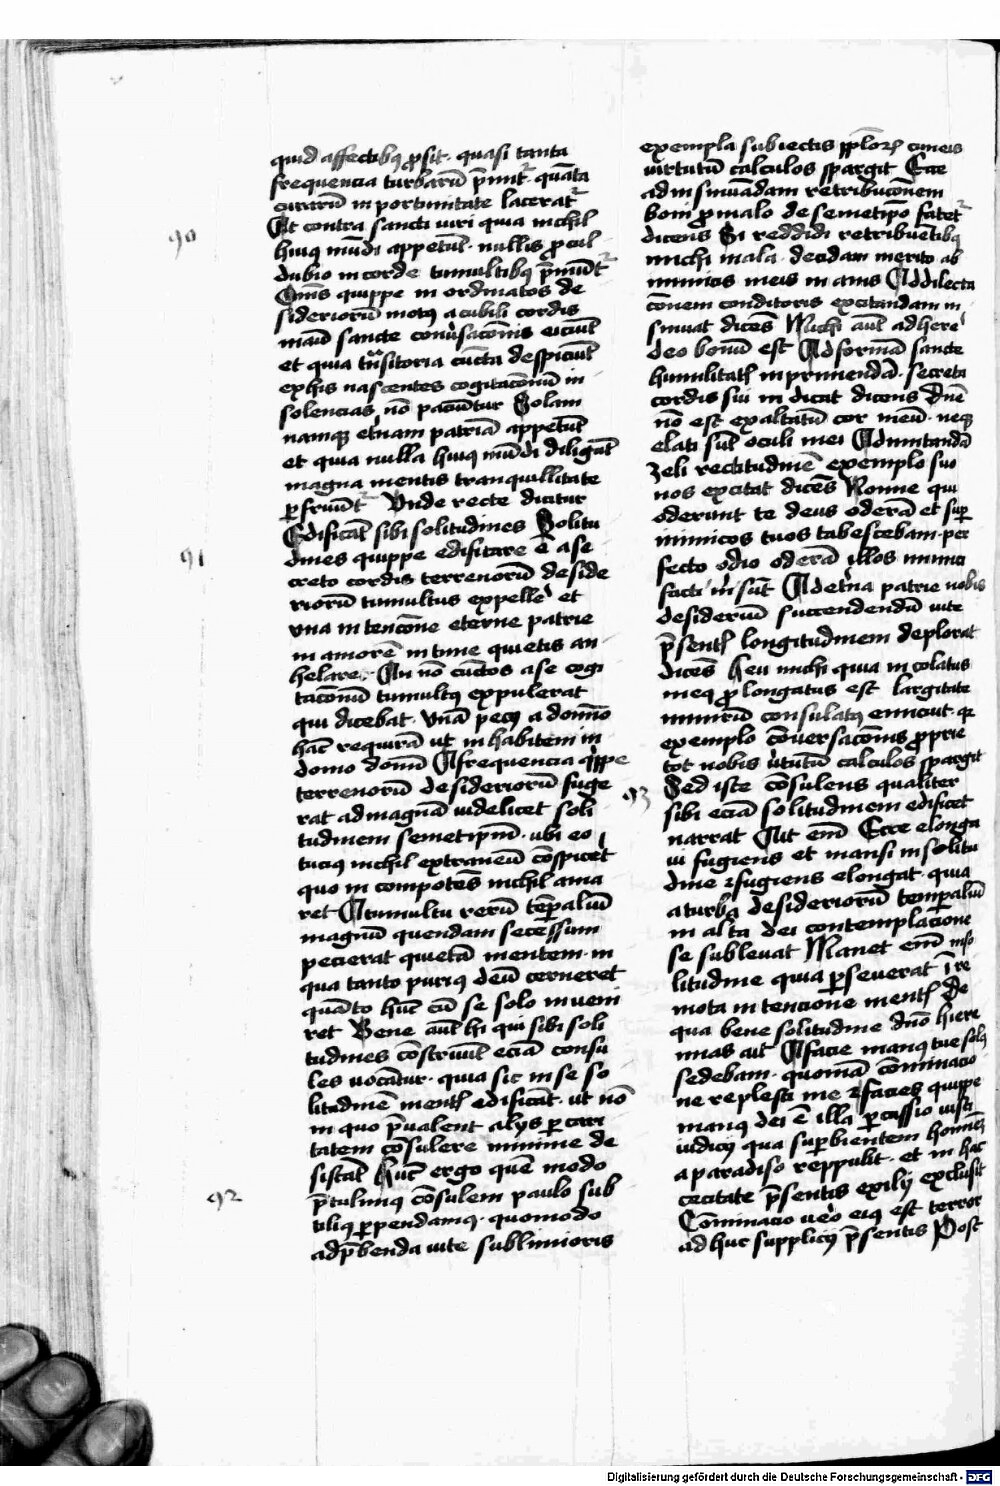 quid affectibꝰ ꝓsit · quasi tanta
frequencia turbarū p̄mit᷑ · quāta
curarū in portunitate lacerat᷑
At contra sancti uiri quia nichil
90
huiꝰ mūdi appetūt · nullis ꝓcul
dubio in corde tumultibꝰ p̄munt᷑
Om̄s quippe in ordinatos de
sideriorū motꝰ a cubili cordis
manū sancte conũsacōnis eiciūt
et quia tᷓnsitoria cūcta despiciūt
ex his nascentes cogitacōnū in
solencias nō paciūtur Solam
namqꝫ et̓nam patriā appetūt
et quia nulla huiꝰ mūdi diligūt
magna mentis tranquillitate
ꝑfruūt᷑ Unde recte dicitur
Edificāt sibi solitudines Solitu
91
dines quippe edificare ē a se
creto cordis terrenorū deside
riorū tumultus expelle᷑ et
una in tencōne eterne patrie
in amorē intime quietis an
helare · An nō cūctos a se cogi
tacōnū tumultꝰ expulerat
qui dicebat · Unā pecij a domīo
hāc requirā ut in habitem in
domo domī A frequencia q̓ppe
terrenorū desideriorū fuge
rat ad magnā uidelicet soli
tudinem semetipm̄ · ubi eo
tucius nichil extraneū cōspicet
quo in compotēs nichil ama
ret A tumultu rerū tēpaliū
magnū quendam secessum
pecierat quietā mentem · in
qua tanto puriꝰ deū cerneret
quāto hūc cū se solo inueni
ret Bene aūt hi qui sibi soli
tudines cōstruūt eciā consu
les uocātur · quia sic in se so
litudinē mentꝭ edificāt · ut nō
in quo p̄ualent alijs ꝑ cari
tatem cōsulere minime de
sistāt Hūc ergo quē modo
p̄tulimꝰ cōsulem paulo sub
92
tiliꝰ ꝑpendamꝰ · quomodo
ad p̄benda uite sublimioris
exempla subiectis pp̄lorꝫ cuneis
uirtutū calculos spargit Ecce
ad in sinuādam retribucōnem
boni ꝓ malo de semetip̄o fatet᷑
dicens Si reddidi retribuētibꝰ
michi mala · decidam merito ab
inimicis meis in anis Ad dilecta
cōnem conditoris excitandam in
sinuat dicēs Michi aūt ad here᷑
deo bonū est Ad formā sancte
humilitatꝭ in primendā · secreta
cordis sui in dicat dicens Dn̄e
nō est exaltatū cor meū · neqꝫ
elati sūt oculi mei Ad imitandā
zeli rectitudinē exemplo suo
nos excitat dicēs Nonne qui
oderunt te deus oderā et suꝑ
inimicos tuos tabescebam · per
fecto odio oderā illos inimici
facti m̓ sūt Ad et̓na patrie nobis
desideriū succendendū uite
p̄sentꝭ longitudinem deplorat
dicēs Heu michi quia in colatus
meꝰ ꝓlongatus est Largitate
nimirū consulatꝰ enituit · qͥ
exemplo cōuersacōnis ꝓprie
tot nobis ũtutū calculos spargit
Sed iste cōsulens qualiter
93
sibi eciā solitudinem edificet
narrat Ait em̄ Ecce elonga
ui fugiens et mansi in solitu
dine Fugiens elongat · quia
a turba desideriorū tempaliū
in alta dei contemplacione
se subleuat Manet em̄ in so
litudine quia ꝑseuerat ī re
mota in tencione mentꝭ De
qua bene solitudine dn̄o hiere
mias ait A facie manꝰ tue solꝰ
sedebam · quoniā cōminacio
ne replesti me Facies quippe
manꝰ dei ē illa ꝑcussio iusti
iudicij qua suꝑbientem hominē
a paradiso reppulit · et in hac
cecitate p̄sentis exilij exclusit
Cōminacio uẽo eiꝰ est terror
ad huc supplicij p̄sentis Post
Digitalisierung gefördert durch die Deutsche Forschungsgemeinschaft - DFG